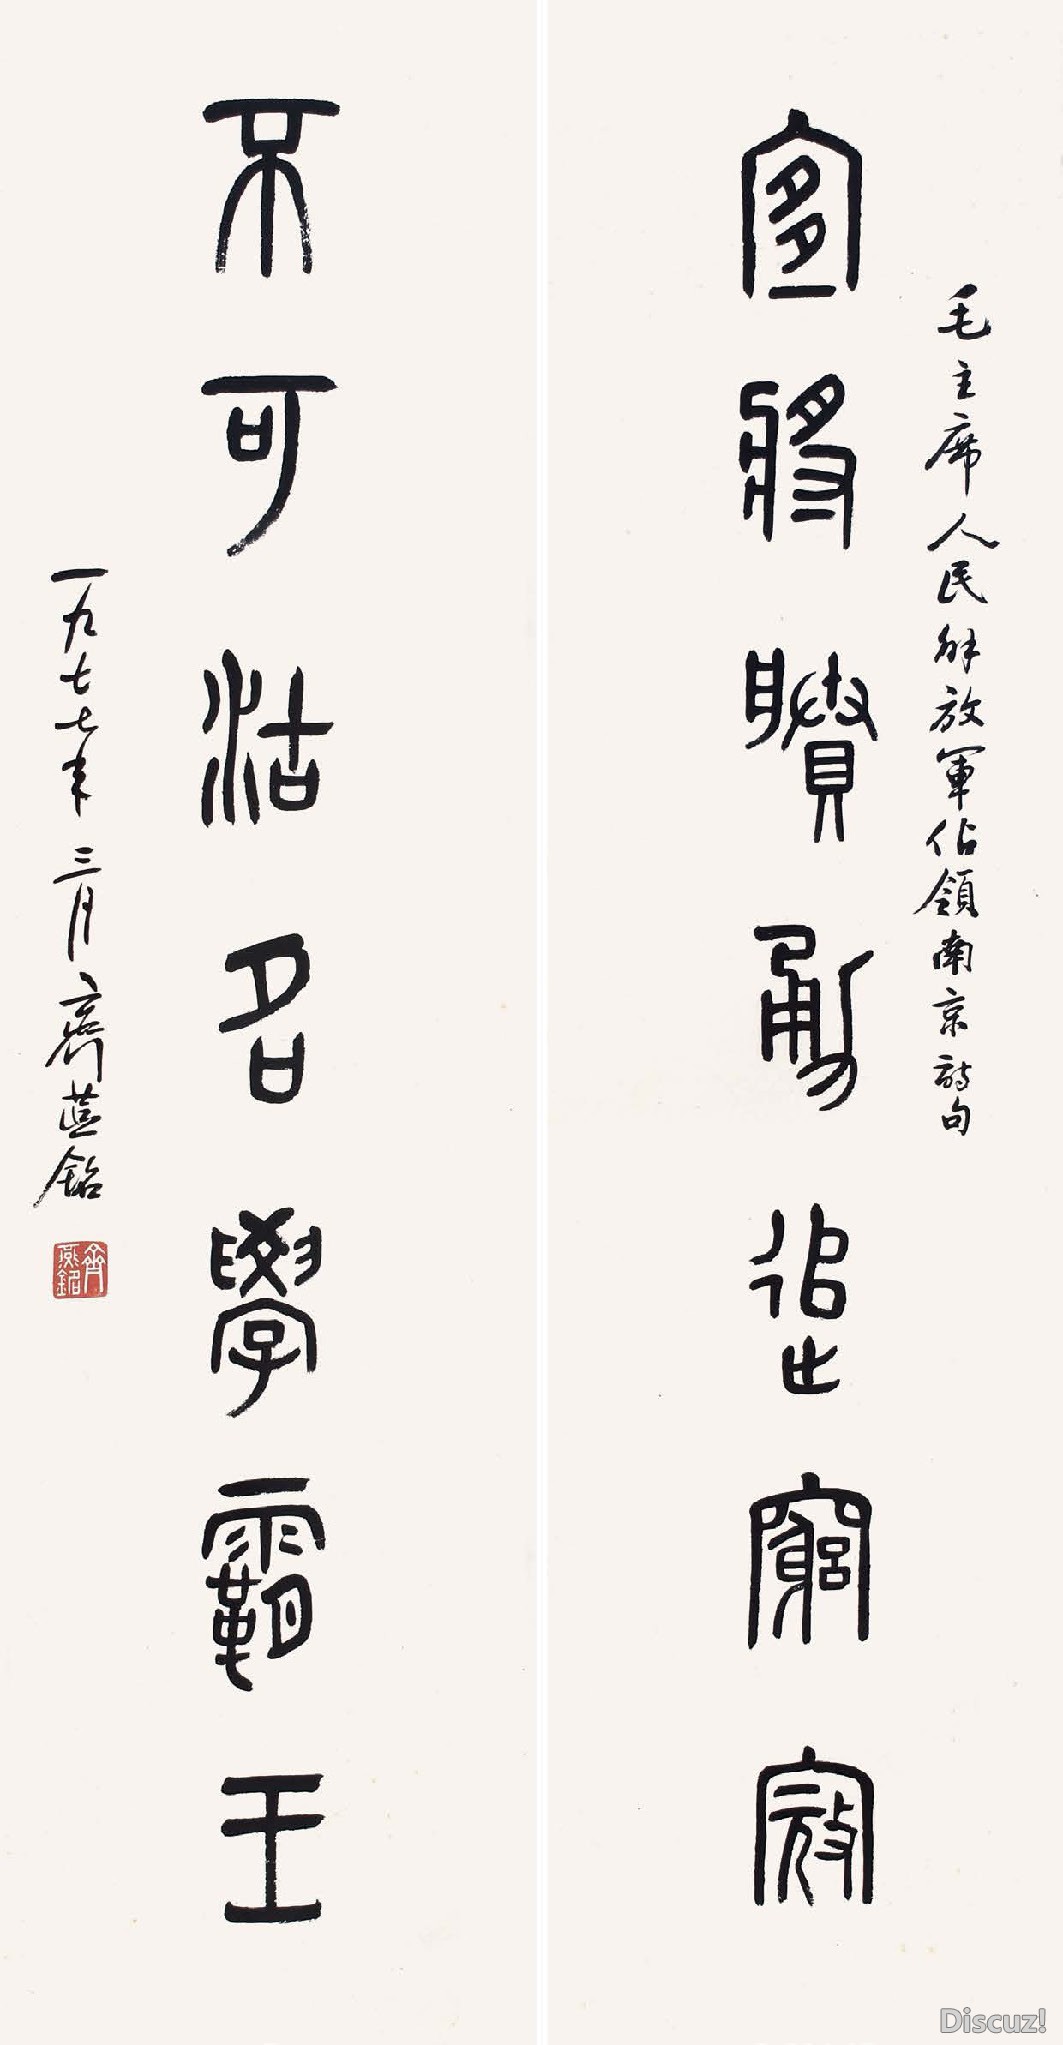 毛主席人民解放軍佔領南京詩句
宜將賸勇追窮寇
不可沽名學霸王
一九七七年三月齊燕銘
齊燕銘
Discuz!